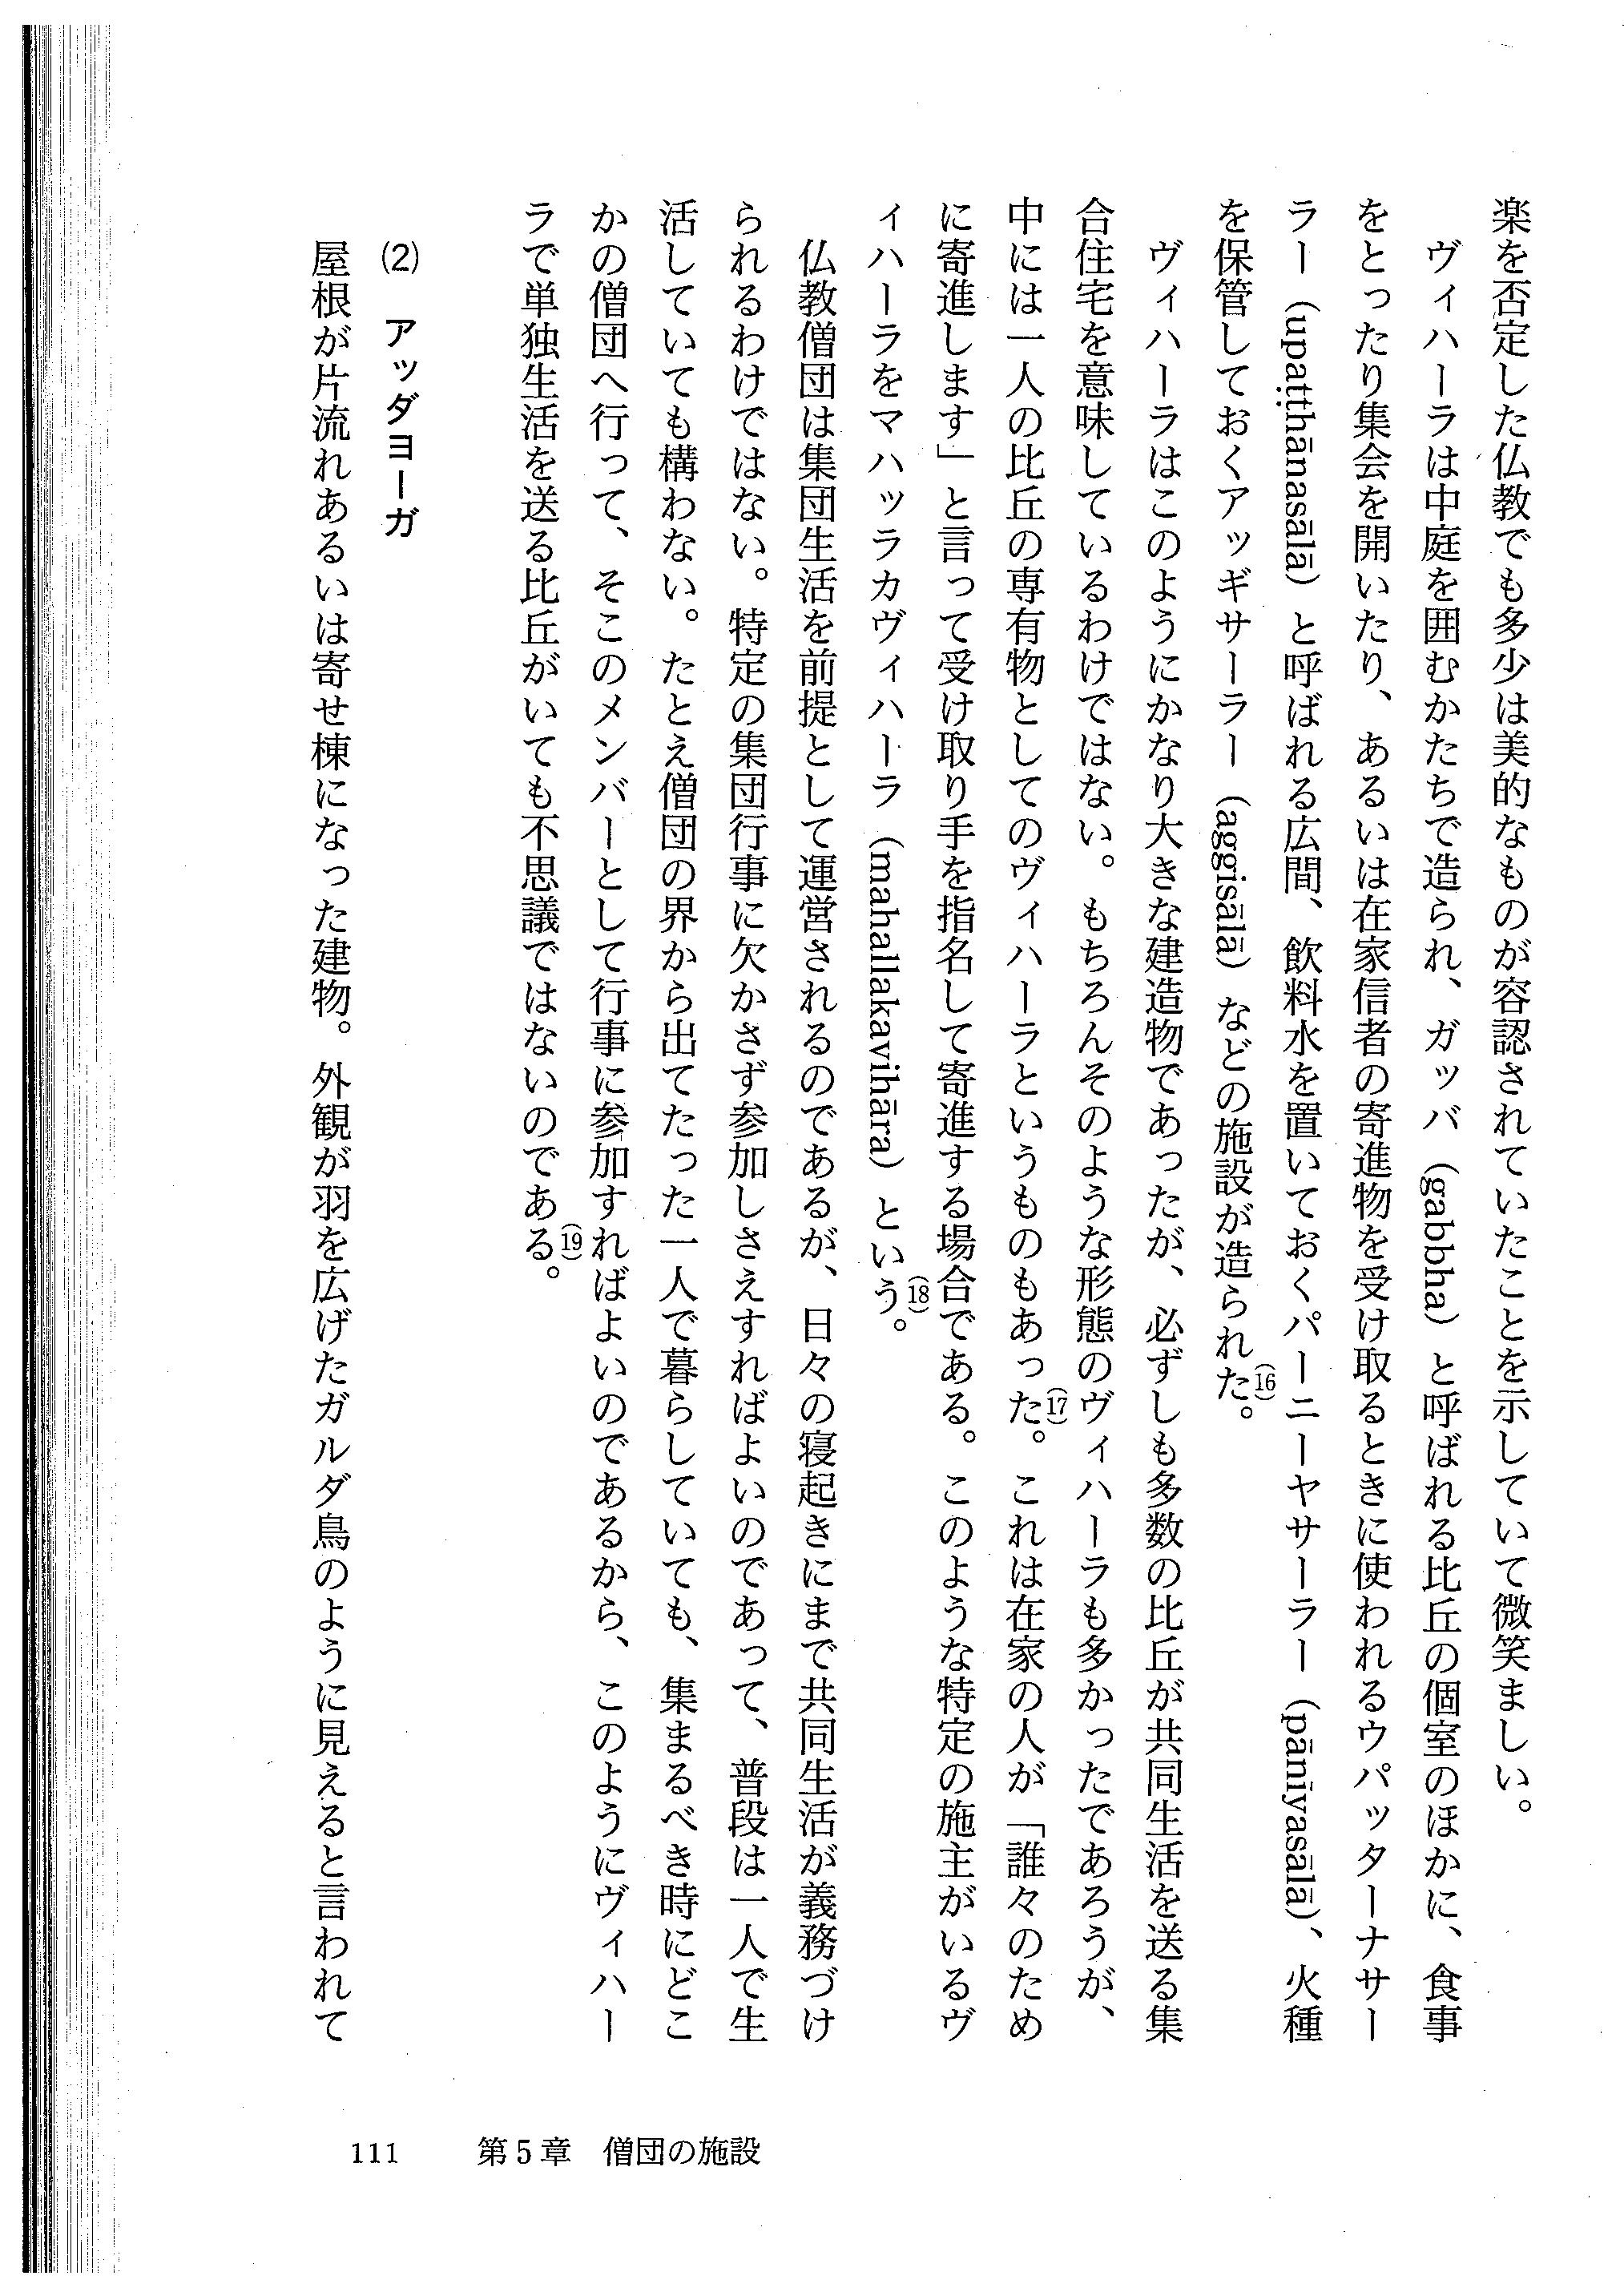 楽を否定した仏教でも多少は美的なものが容認されていたことを示していて微笑ましい。
　ヴィハーラは中庭を囲むかたちで造られ、ガッバ（gabbha）と呼ばれる比丘の個室のほかに、食事
をとったり集会を開いたり、あるいは在家信者の寄進物を受け取るときに使われるウパッターナサー
ラー（upaṭṭhānasālā）と呼ばれる広間、飲料水を置いておくパーニーヤサーラー（pānīyasālā）、火種
を保管しておくアッギサーラー（aggisālā）などの施設が造られた(16)。
　ヴィハーラはこのようにかなり大きな建造物であったが、必ずしも多数の比丘が共同生活を送る集
合住宅を意味しているわけではない。もちろんそのような形態のヴィハーラも多かったであろうが、
中には一人の比丘の専有物としてのヴィハーラというものもあった(17)。これは在家の人が「誰々のため
に寄進します」と言って受け取り手を指名して寄進する場合である。このような特定の施主がいるヴ
ィハーラをマハッラカヴィハーラ（mahallakavihāra）という(18)。
　仏教僧団は集団生活を前提として運営されるのであるが、日々の寝起きにまで共同生活が義務づけ
られるわけではない。特定の集団行事に欠かさず参加しさえすればよいのであって、普段は一人で生
活していても構わない。たとえ僧団の界から出てたった一人で暮らしていても、集まるべき時にどこ
かの僧団へ行って、そこのメンバーとして行事に参加すればよいのであるから、このようにヴィハー
ラで単独生活を送る比丘がいても不思議ではないのである(19)。
(2)　アッダヨーガ
　屋根が片流れあるいは寄せ棟になった建物。外観が羽を広げたガルダ鳥のように見えると言われて
111　第5章　僧団の施設